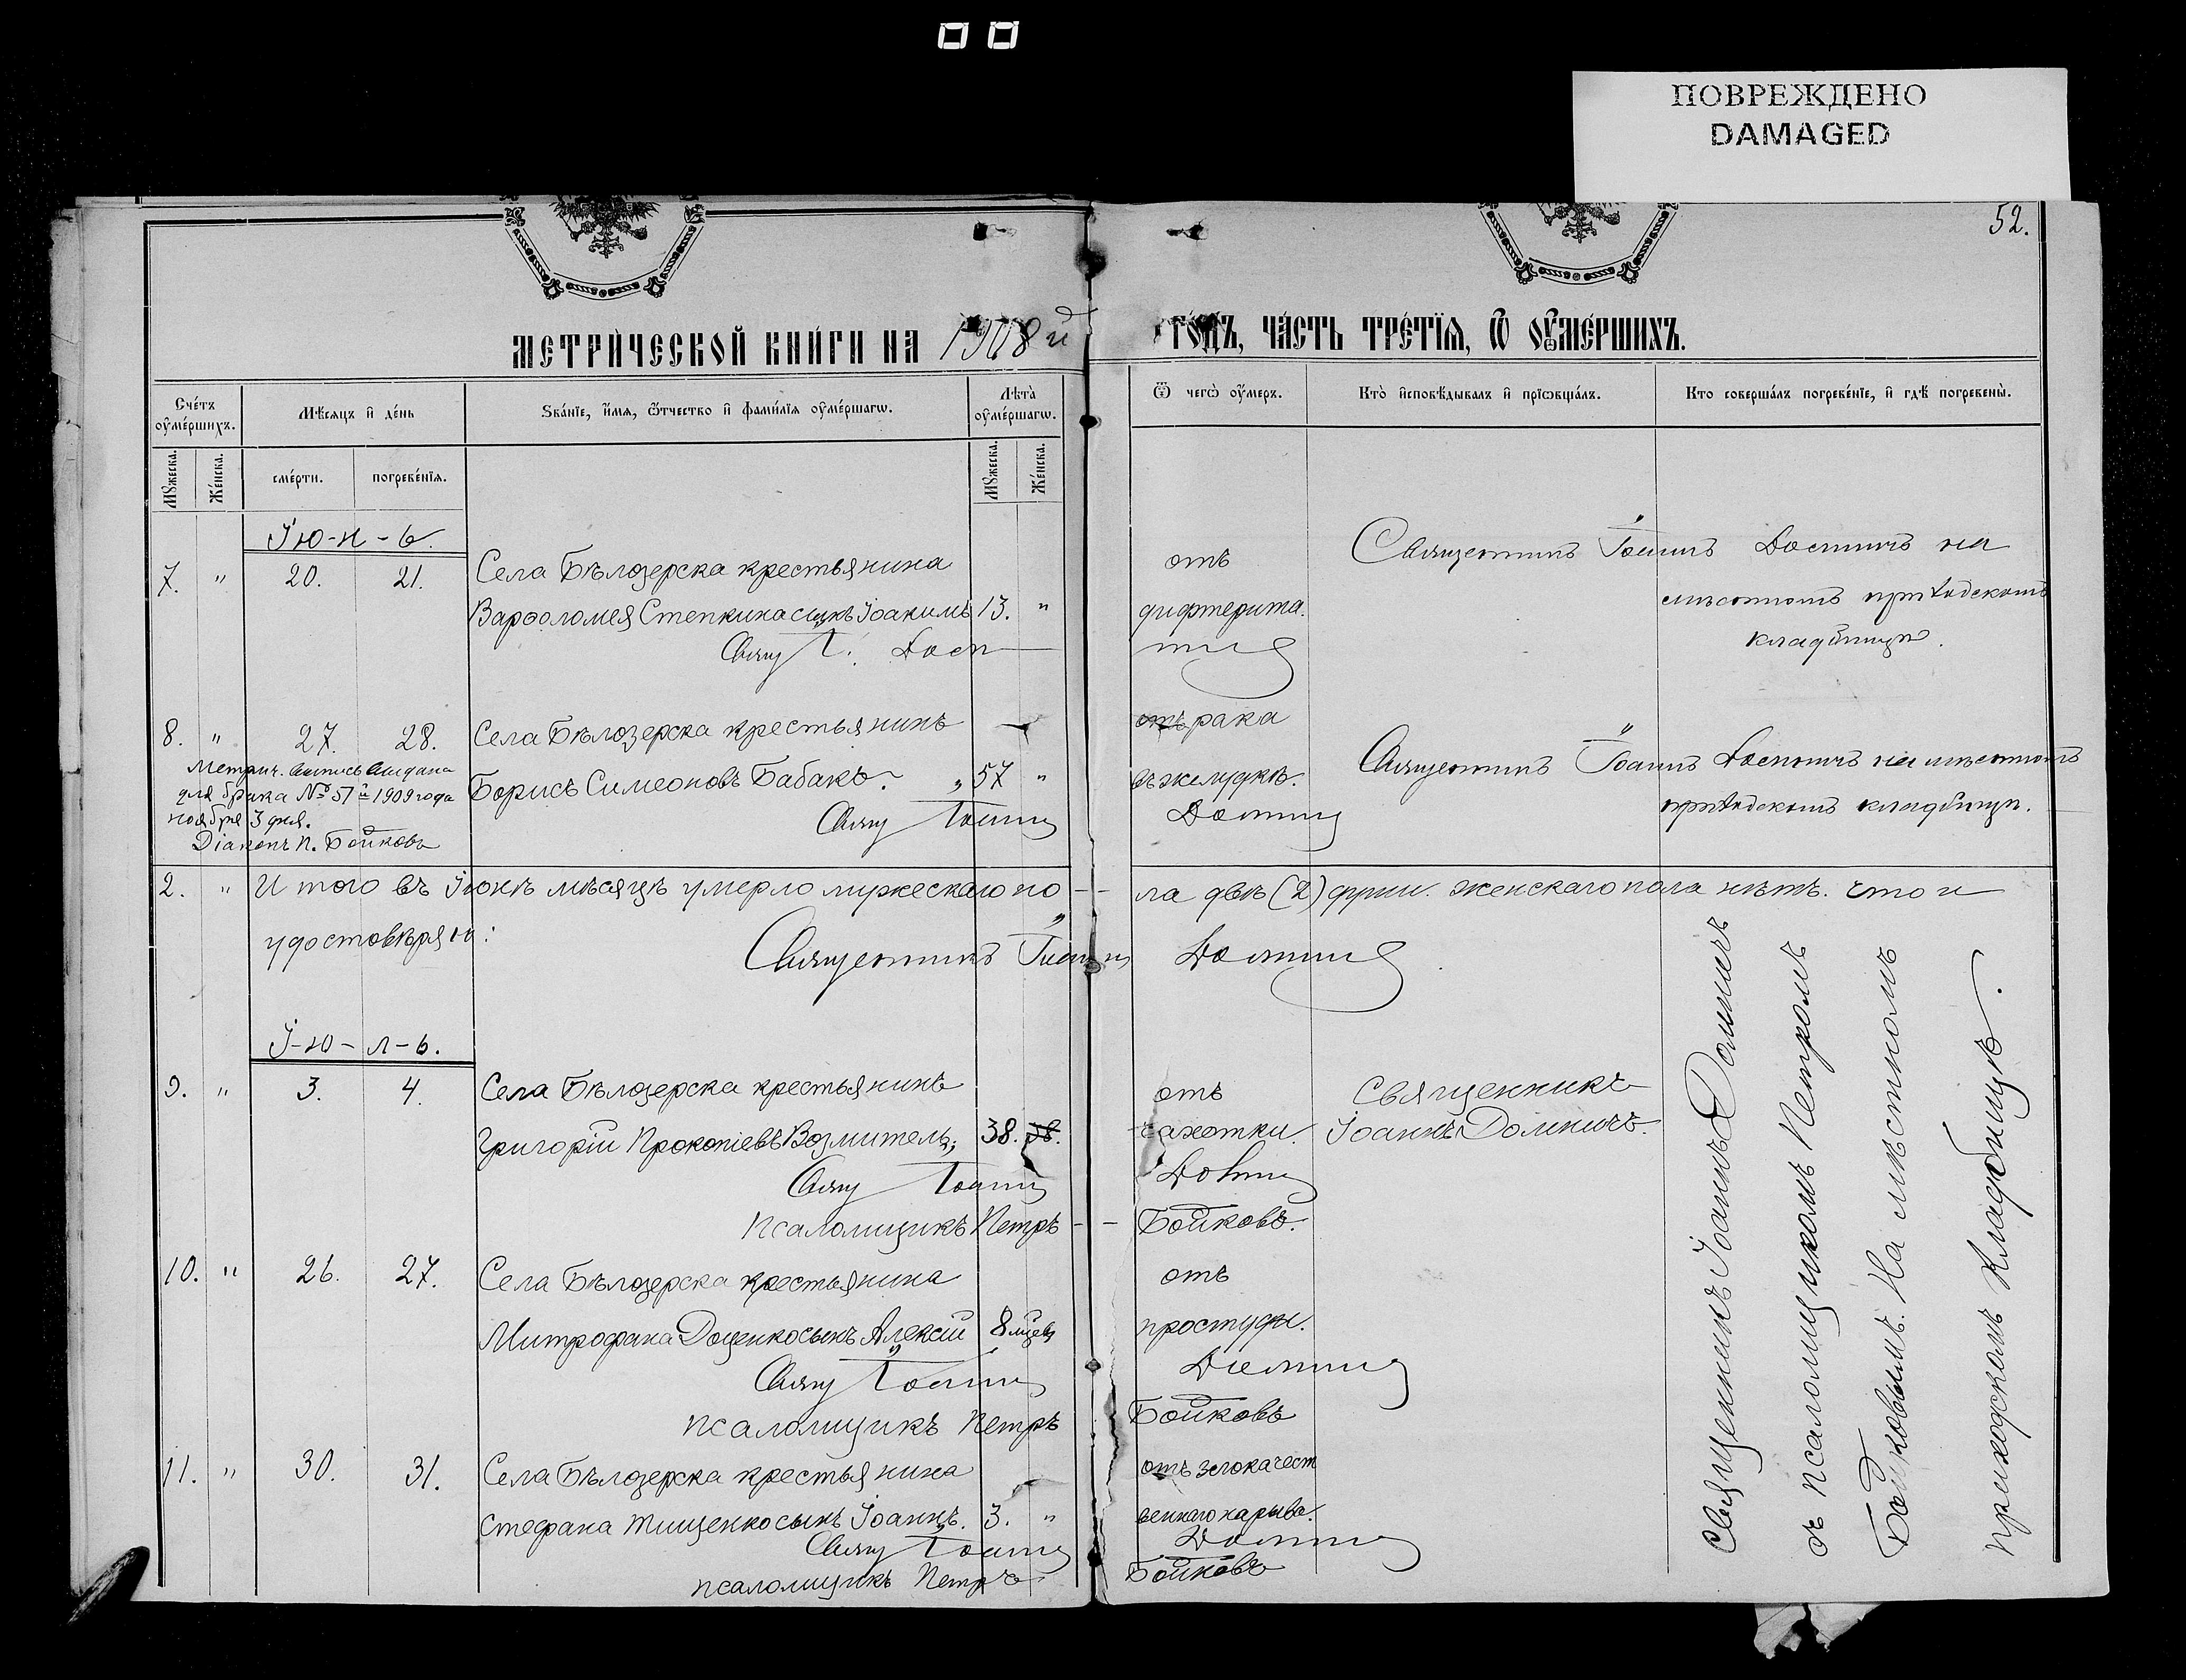 ПОВРЕЖДЕНО
DAMAGED
52.
МЕТРИЧЕСКОЙ КНИГИ НА 1908 й ГОДЪ, ЧАСТЬ ТРЕТІЯ, Ѿ ОУМЕРШИХЪ.
Счетъ оумершихъ.
Мѣсяцъ и день
Званіе, имя, отчество и фамилія оумершагω.
Лѣта оумершагω.
Ѿ чегω оумеръ.
Кто исповѣдывалъ и пріωбщалъ.
Кто совершалъ погребеніе, и гдѣ погребены.
Мужеска.
Женска.
смерти.
погребенія.
Мужеска.
Женска.
Ію-н-ь.
7. " 20. 21. Села Бѣлозерска крестьянина
Варѳоломея Степкина сынъ Іоакимъ 13. "
отъ
дифтерита.
Священникъ Іоаннъ Домничъ на
мѣстномъ приходскомъ
кладбищѣ.
8. " 27. 28. Села Бѣлозерска крестьянинъ
Борисъ Симеоновъ Бабакъ. " 57 "
Метрич. выпись выдана
для брака № 51 й 1909 года
ноября 3 дня.
Діаконъ П. Бойковъ
отъ рака
въ желудкѣ.
Свящ Іоанн Домнич
Священникъ Іоаннъ Домничъ на мѣстномъ
приходскомъ кладбищѣ.
2. " И того въ Іюнѣ мѣсяцѣ умерло мужескаго по-- ла двѣ (2) души. женскаго пола нѣтъ. что и
удостовѣряю:
Священникъ Іоаннъ Домнич
І-ю-л-ь.
9. " 3. 4. Села Бѣлозерска крестьянинъ
Григорій Прокопіевъ Возмитель; 38. 38.
отъ
чахотки.
Священникъ
Іоаннъ Домничъ.
Свящ Іоанн Домнич
псаломщикъ Петръ -- Бойковъ.
10. " 26. 27. Села Бѣлозерска крестьянина
Митрофана Доценко сынъ Алексій 8 мцевъ
отъ
простуды.
Свящ Іоанн Домнич
псаломщикъ Петръ Бойковъ
11. " 30. 31. Села Бѣлозерска крестьянина
Стефана Тищенко сынъ Іоаннъ. 3. "
отъ злокачест
веннаго нарыва.
Свящ Іоанн Домнич
псаломщикъ Петръ Бойковъ
Священникъ Іоаннъ Домничъ
съ псаломщикомъ Петромъ
Бойковымъ. На мѣстномъ
приходскомъ кладбищѣ.